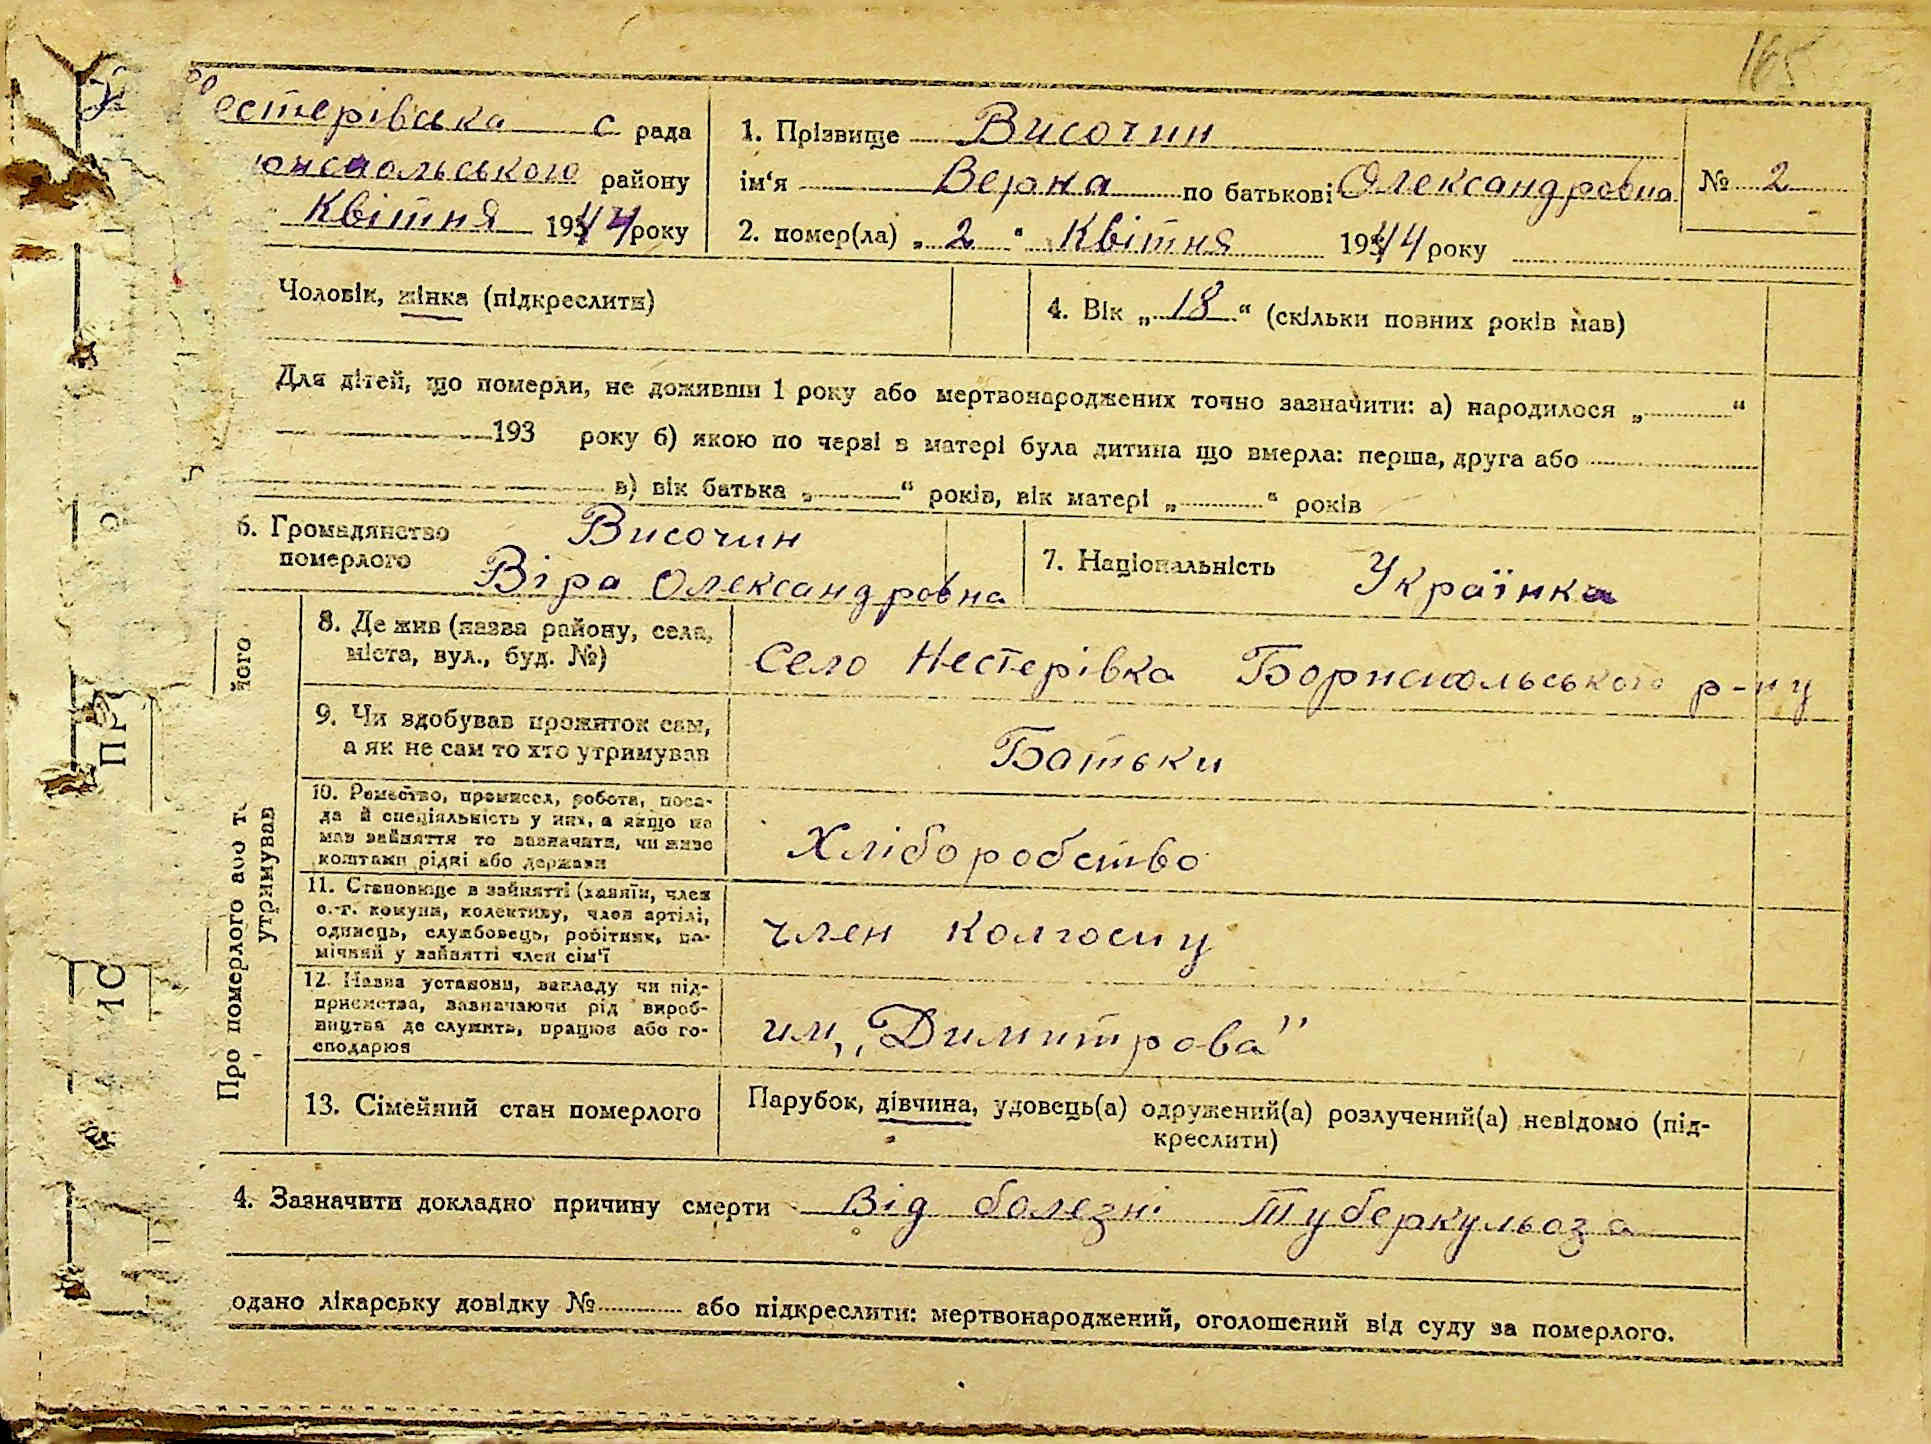 165
естерівська с рада
1. Прізвище Височин
ориспольського району
ім'я Верна по батькові Олександровна
№ 2
Квітня 1944 року
2. помер(ла) „ 2 " Квітня 1944 року
Чоловік, жінка (підкреслити)
4. Вік „ 18 " (скільки повних років мав)
Для дітей, що померли, не доживши 1 року або мертвонароджених точно зазначити: а) народилося „ "
193 року б) якою по черзі в матері була дитина що вмерла: перша, друга або
в) вік батька „ " років, вік матері „ " років
6. Громадянство
померлого
Височин
Віра Олександровна
7. Національність Українка
8. Де жив (назва району, села,
міста, вул., буд. №)
Село Нестерівка Бориспольського р-ну
9. Чи здобував прожиток сам,
а як не сам то хто утримував
Батьки
10. Ремество, промисел, робота, поса-
да й спеціяльність у них, а якщо не
мав зайняття то зазначити, чи живе
коштами рідні або держави
Хліборобство
11. Становище в зайнятті (хазяїн, член
с.-г. комуни, колективу, член артілі,
одинець, службовець, робітник, по-
мічний у зайнятті член сім'ї
член колгоспу
12. Назва установи, закладу чи під-
приємства, зазначаючи рід вироб-
ництва де служить, працює або го-
сподарює
им „Димитрова"
13. Сімейний стан померлого
Парубок, дівчина, удовець(а) одружений(а) розлучений(а) невідомо (під-
креслити)
Про померлого або т
утримував
4. Зазначити докладно причину смерти Від болезні Туберкульоза
одано лікарську довідку № або підкреслити: мертвонароджений, оголошений від суду за померлого.